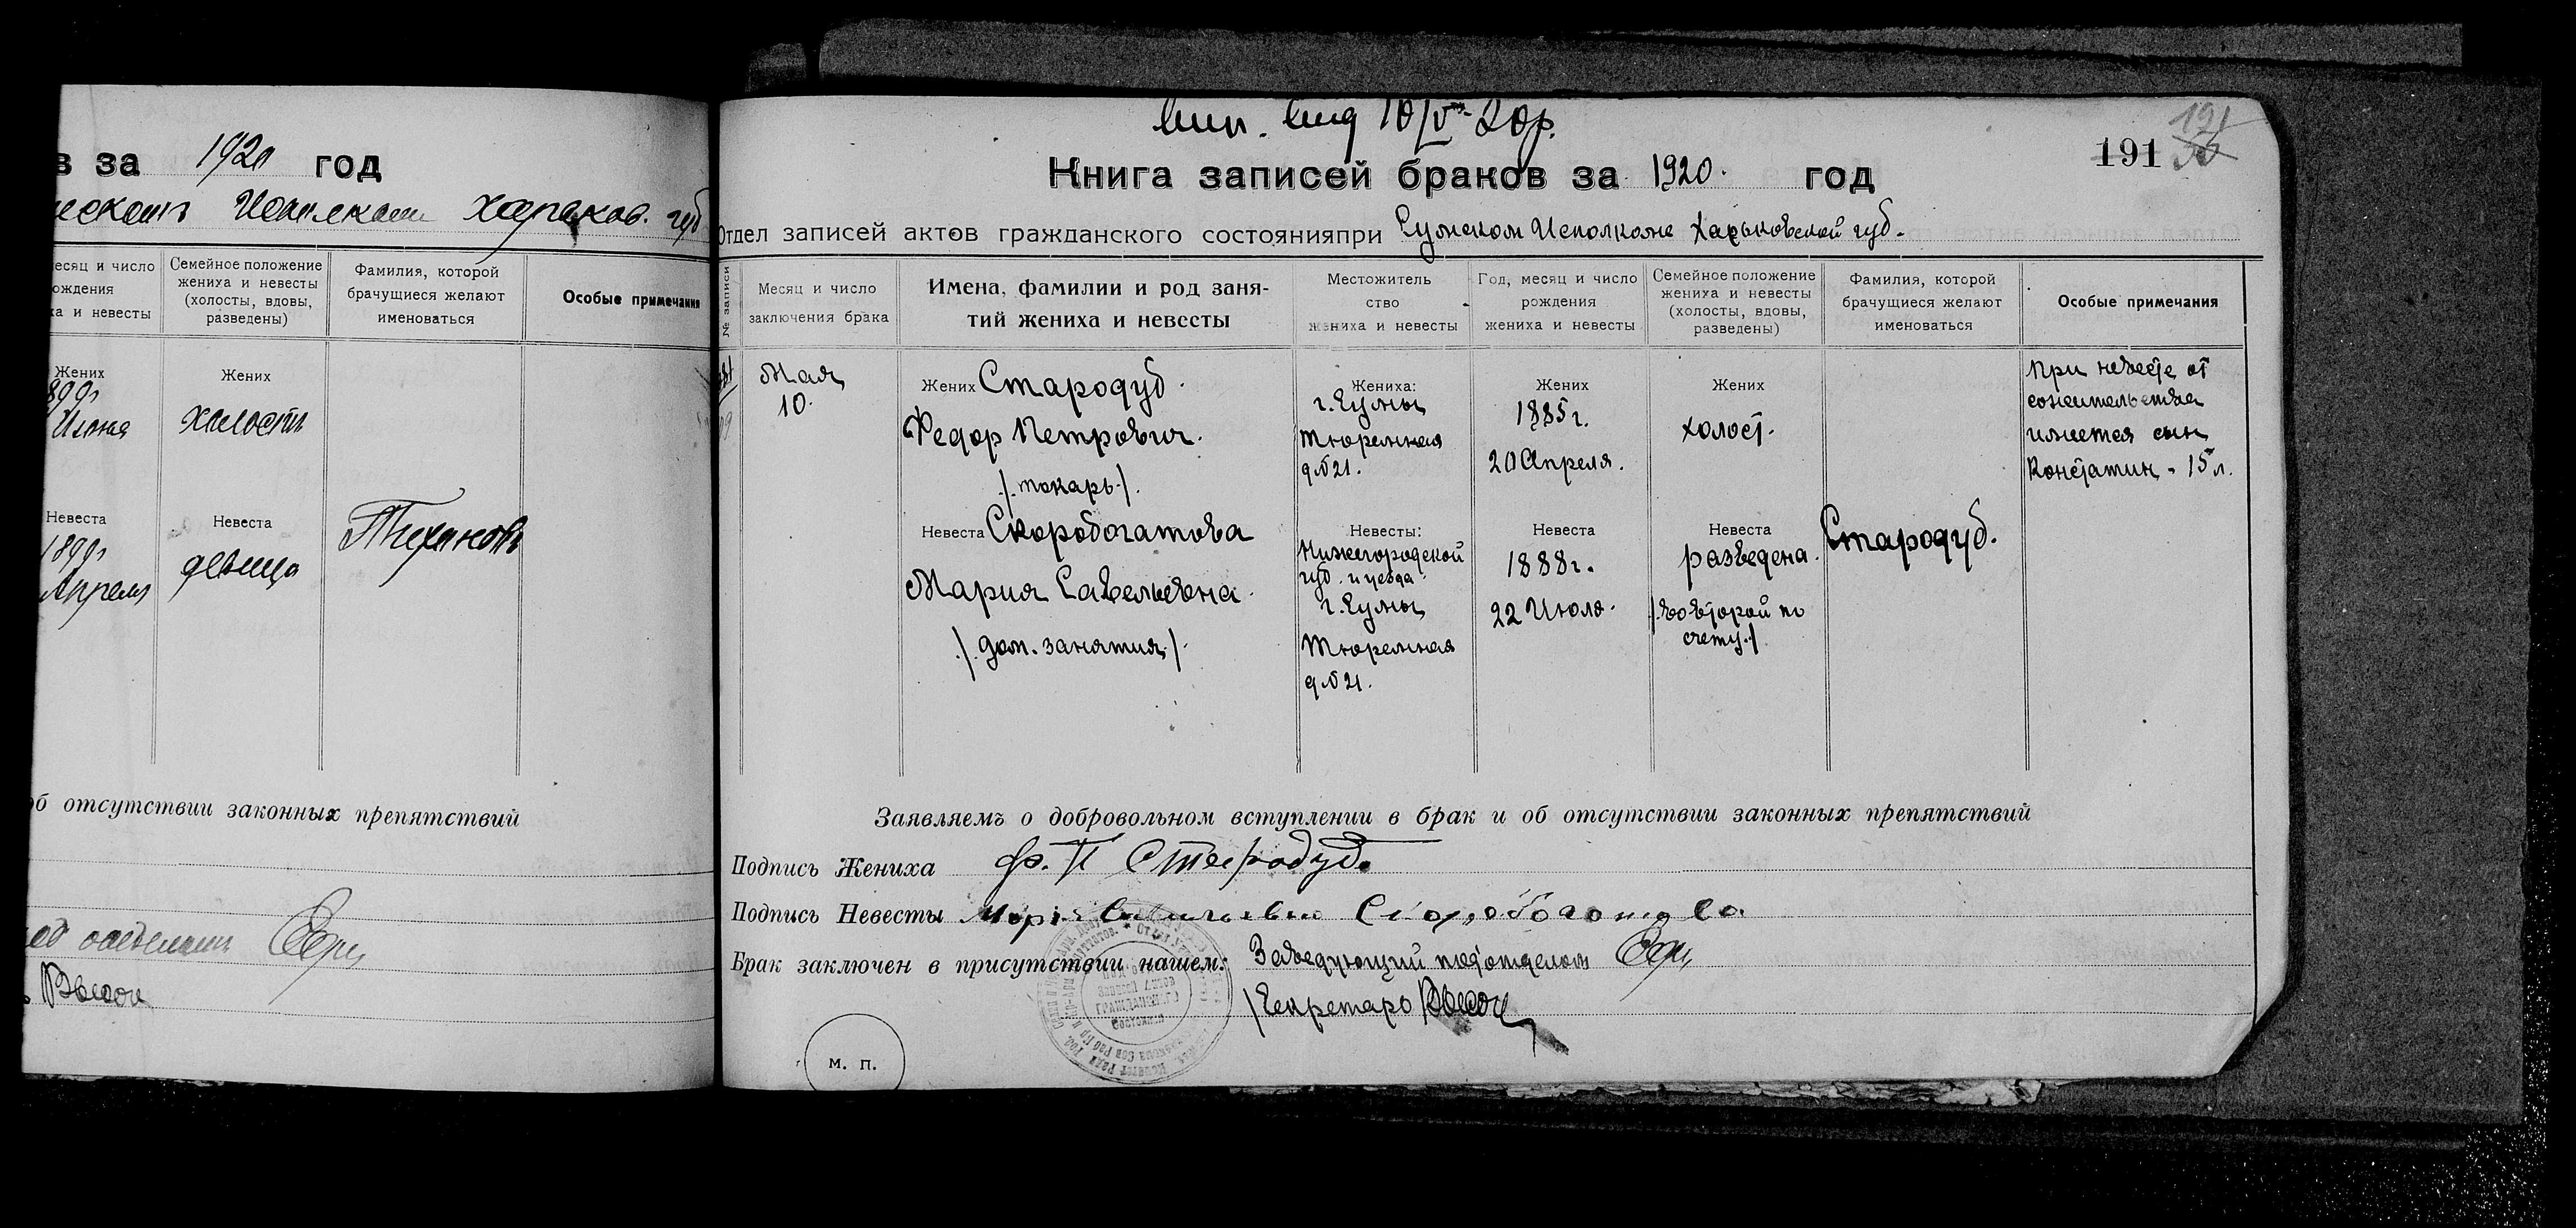 в за 1920 год
Харьков. губ
есяц и число
ождения
ха и невесты
Семейное положение
жениха и невесты
(холосты, вдовы,
разведены)
Фамилия, которой
брачущиеся желают
именоваться
Особые примечания
Жених
899г
Июня
Жених
холостъ
Невеста
1899г
Апреля
Невеста
девица
об отсутствии законных препятствий
вып. вид 10/V 20р.
191
121
Книга записей браков за 1920. год
Отдел записей актов гражданского состоянияпри Сумском Исполкоме Харьковской губ.
№ записи
Месяц и число
заключения брака
Имена, фамилии и род заня-
тий жениха и невесты
Местожитель
ство
жениха и невесты
Год, месяц и число
рождения
жениха и невесты
Семейное положение
жениха и невесты
(холосты, вдовы,
разведены)
Фамилия, которой
брачущиеся желают
именоваться
Особые примечания
Мая
10.
Жених Стародуб.
Федор Петрович.
/.токарь./.
Жениха:
г. Сумы
Тюремная
д №21.
Жених
1885г.
20 Апреля.
Жених
холост.
При невесте от
сожительства
имеется сын
Констатин - 15 л.
Невеста Скоробогатова
Мария Савельевна.
./.дом. занятия./.
Невесты:
Нижегородской
губ. и уезда
г. Сумы
Тюремная
д №21.
Невеста
1888г.
22 Июля.
Невеста
разведена.
/.во второй по
счету./
Стародуб.
Заявляемъ о добровольном вступлении в брак и об отсутствии законных препятствий
Подпись Жениха Ф. П Стародуб.
Подпись Невесты Марiя Савельевна Скоробогатова
Брак заключен в присутствии нашем: Заведующий подотделом
/Секретарь
м. п.